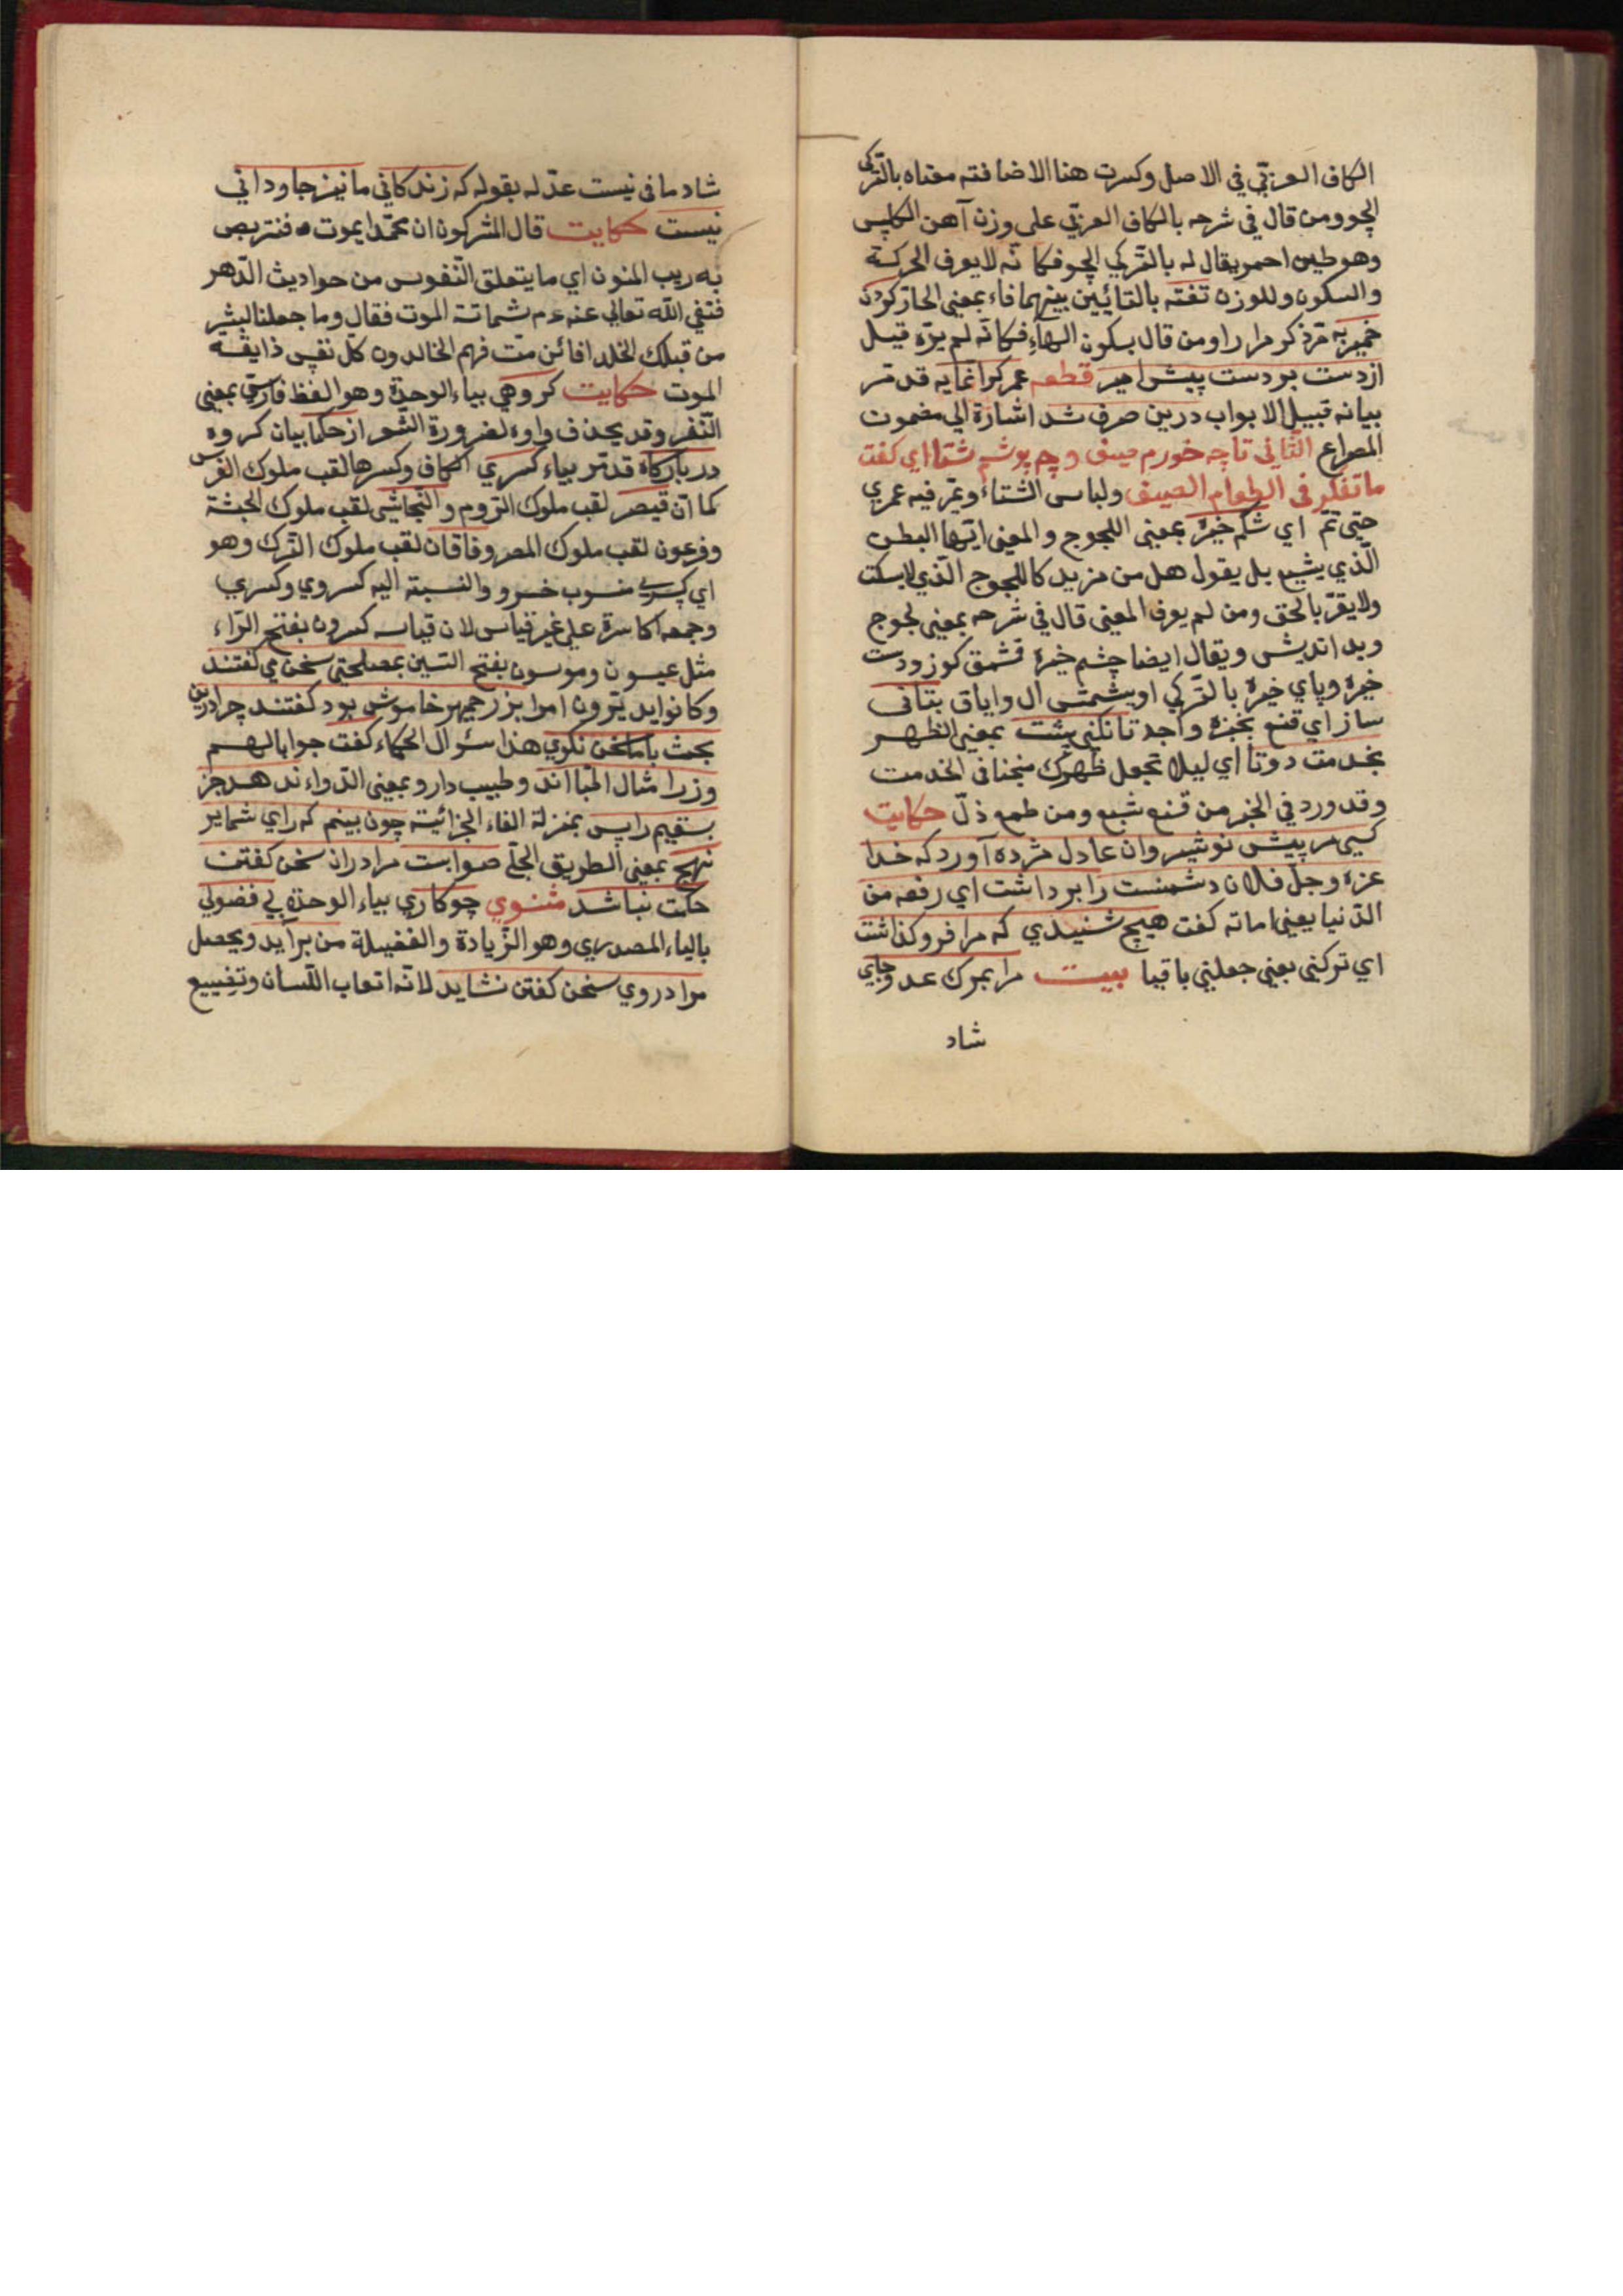 الكاف العربيّ في الاصل وكسرت هنا الاضافته معناه بالتّركي
الچو ومن قال في شرحه بالكاف العربيّ على وزن آهن الكلس
وهو طين احمر يقال له بالتّركي الچو فكانّه لا يعرف الحركة
والسكون وللوزن تفته بالتائين بينهما فاء بمعنى الحار كردن
خمير به مرّ ذكر مرارا ومن قال بسكون الهاء فكانّه لم يره قيل
از دست بر دست پيش امير قطعه عمر كرانمايه قد مرّ
بيانه قبيل الابواب درين صرف شد اشارة الى مضمون
المصراع الثّاني تا چه خورم صيف و چه پوشم شتا اي كفت
ما تفكر فى الطعام الصيف ولباس الشتاء ويمرّ فيه عمري
حتى تمّ اي شكم خيره بمعنى اللجوج والمعنى ايّها البطن
الّذي يشبع بل يقول هل من مزيد كاللجوج الّذي لا يسكت
ولا يقرّ بالحق ومن لم يعرف المعنى قال في شرحه بمعنى لجوج
وبد انديش ويقال ايضا چشم خيره قشمق كوز ودست
خيره وپاي خيره بالتّركي اويشمش ال واياق بتانى
ساز اي قنع بخبزة واجد تا نكنى پشت بمعنى الظهر
بخدمت دوتا اي ليلا تجعل ظهرك منحنا فى الخدمت
وقد ورد في الخبر من قنع شبع ومن طمع ذلّ حكايت
كسى مر پيش نوشيروان عادل مژده آورد كه خدا
عزه وجل فلان دشمنت را برداشت اي رفعه من
الدّنيا يعنى اماته كفت هيچ شنيدي كه مرا فرو كذاشت
اي تركنى يعنى جعلني باقيا بيت مرا بمرك عدو جاي
شاد
شادمانى نيست علّله بقوله كه زندكانى ما نيز جاودانى
نيست حكايت قال المشركون ان محمّدا يموت فنتربص
به ريب المنون اي ما يتعلق النّفوس من حواديث الدّهر
فنفى اللّه تعالى عنه عم شماتة الموت فقال وما جعلنا لبشر
من قبلك الخلد افائن متّ فهم الخالدون كلّ نفس ذايقة
الموت حكايت كروهي بياء الوحدة وهو لفظ فارسيّ بمعنى
النّفر وقد يحذف واوه لضرورة الشعر از حكما بيان كروه
در باركاه قد مرّ بياء كسري الكاف وكسرها لقب ملوك الفرس
كما انّ قيصر لقب ملوك الرّوم والنّجاشى لقب ملوك الحبشة
وفرعون لقب ملوك المصر وخاقان لقب ملوك التّرك وهو
اي كسرى منسوب خسرو والنسبة اليه كسروي وكسري
وجمعه اكاسرة على غير قياس لان قياسه كسرون بفتح الرّاء
مثل عيسون وموسون بفتح السّين بمصلحتى سخن مي كفتند
وكانوا يدبّرون امرا بزرجمهر خاموش بود كفتند چرا درين
بحث با ما سخن نكوي هذا سئوال الحكماء كفت جوابا لهم
وزرا مثال اطبّا اند وطبيب دارو بمعنى الدّواء ندهد جز
بسقيم را پس بمنزلة الفاء الجزائية چون بينم كه راي شما بر
نهج بمعنى الطريق الجلّى صوابست مرا در ان سخن كفتن
حكمت نباشد مثنوي چو كاري بياء الوحدة بي فضولي
بالياء المصدري وهو الزّيادة والفضيلة من بر آيد ويحصل
مرا در وي سخن كفتن نشايد لانّه اتعاب اللّسان وتضييع